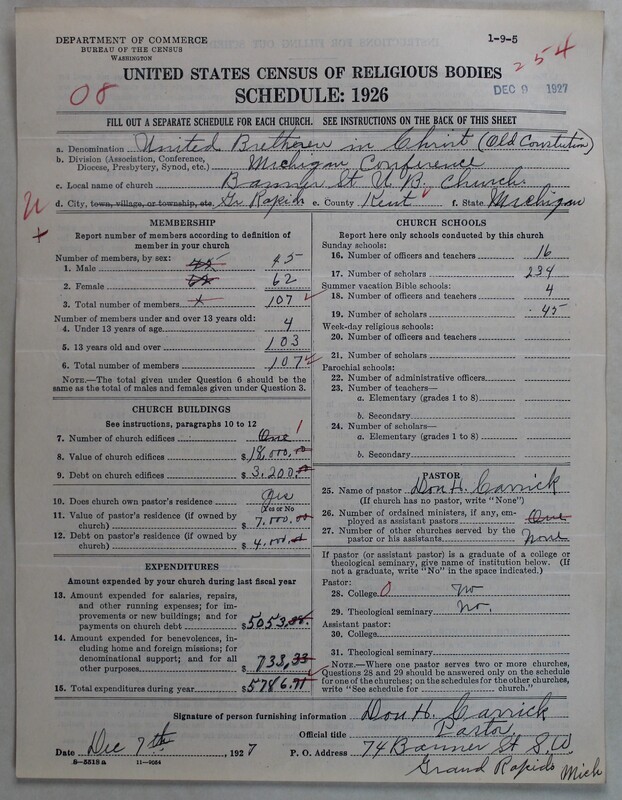 DEPARTMENT OF COMMERCE
BUREAU OF THE CENSUS
WASHINGTON
1-9-5
254
UNITED STATES CENSUS OF RELIGIOUS BODIES
DEC 9 1927
08
SCHEDULE: 1926
FILL OUT A SEPARATE SCHEDULE FOR EACH CHURCH. SEE INSTRUCTIONS ON THE BACK OF THIS SHEET
a. Denomination United Bretheren in Christ (Old Constitution)
b. Division (Association, Conference, Diocese, Presbytery, Synod, etc.) Michigan Conference
c. Local name of church Banner St U.B. Church.
d. City, town, village, or township, etc. Gr Rapids e. County Kent f. State Michigan
MEMBERSHIP
Report number of members according to definition of
member in your church
Number of members, by sex:
1. Male 45 45
2. Female 62
3. Total number of members 107
Number of members under and over 13 years old:
4. Under 13 years of age 4
5. 13 years old and over 103
6. Total number of members 107
NOTE.—The total given under Question 6 should be the
same as the total of males and females given under Question 3.
CHURCH BUILDINGS
See instructions, paragraphs 10 to 12
7. Number of church edifices One 1
8. Value of church edifices $18,000.00
9. Debt on church edifices $3,200.00
10. Does church own pastor's residence Yes
(Yes or No)
11. Value of pastor's residence (if owned by
church) $7,000.00
12. Debt on pastor's residence (if owned by
church) $4,000.00
EXPENDITURES
Amount expended by your church during last fiscal year
13. Amount expended for salaries, repairs,
and other running expenses; for im-
provements or new buildings; and for
payments on church debt $5053.38
14. Amount expended for benevolences,
including home and foreign missions; for
denominational support; and for all
other purposes $733.33
15. Total expenditures during year $5786.71
CHURCH SCHOOLS
Report here only schools conducted by this church
Sunday schools:
16. Number of officers and teachers 16
17. Number of scholars 234
Summer vacation Bible schools:
18. Number of officers and teachers 4
19. Number of scholars 45
Week-day religious schools:
20. Number of officers and teachers
21. Number of scholars
Parochial schools:
22. Number of administrative officers
23. Number of teachers—
a. Elementary (grades 1 to 8)
b. Secondary
24. Number of scholars—
a. Elementary (grades 1 to 8)
b. Secondary
PASTOR
25. Name of pastor Don H. Carrick
(If church has no pastor, write "None")
26. Number of ordained ministers, if any, em-
ployed as assistant pastors One
27. Number of other churches served by the
pastor or his assistants None
If pastor (or assistant pastor) is a graduate of a college or
theological seminary, give name of institution below. (If
not a graduate, write "No" in the space indicated.)
Pastor:
28. College 0 No
29. Theological seminary No.
Assistant pastor:
30. College
31. Theological seminary
NOTE.—Where one pastor serves two or more churches,
Questions 28 and 29 should be answered only on the schedule
for one of the churches; on the schedules for the other churches,
write "See schedule for church."
Signature of person furnishing information Don H. Carrick
Official title Pastor
Date Dec 7th, 1927 P. O. Address 74 Banner St S.W.
8-5518a 11-9064
Grand Rapids Mich